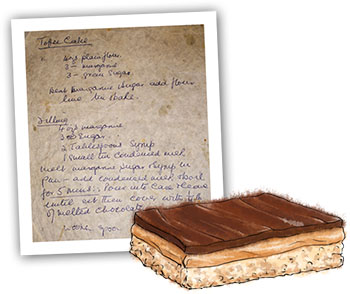 Toffee Cake
6ozs plain flour
3 - margarine
3 - from Sugar
Beat margarine sugar add flour
line tin Bake
Filling
4 ozs margarine
3oz Sugar
2 Tablespoons Syrup
1 Small tin condensed milk
melt margarine sugar syrup in
Pan - add condensed milk & boil
for 5 mins. Pour into case leave
until set then cover with
of melted chocolate